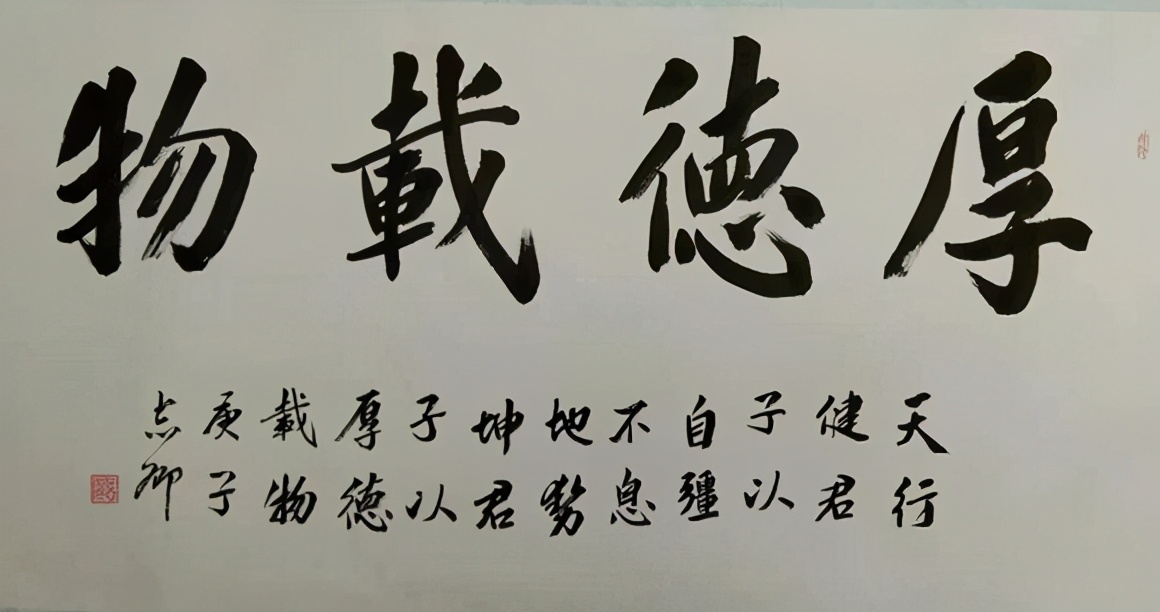 厚德載物
天行
健君
子以
自疆
不息
地勢
坤君
子以
厚德
載物
庚子
志卿